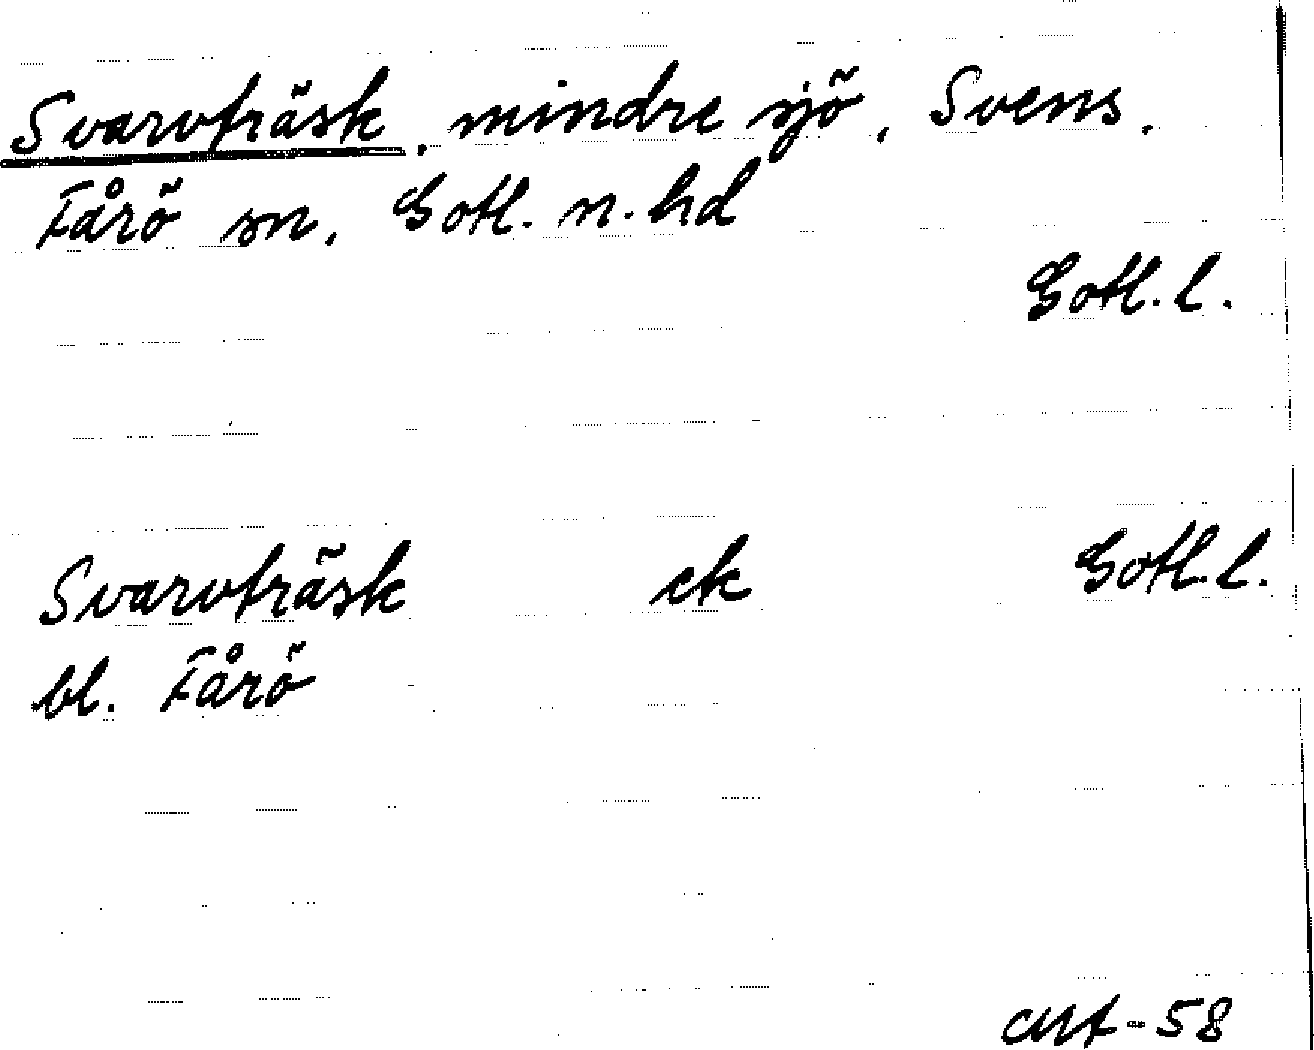 Svarvträsk, mindre sjö, Svens.
Fårö sn, Gotl. n. hd
Gotl. l.
Svarvträsk ek Gotl. l.
bl. Fårö
-58